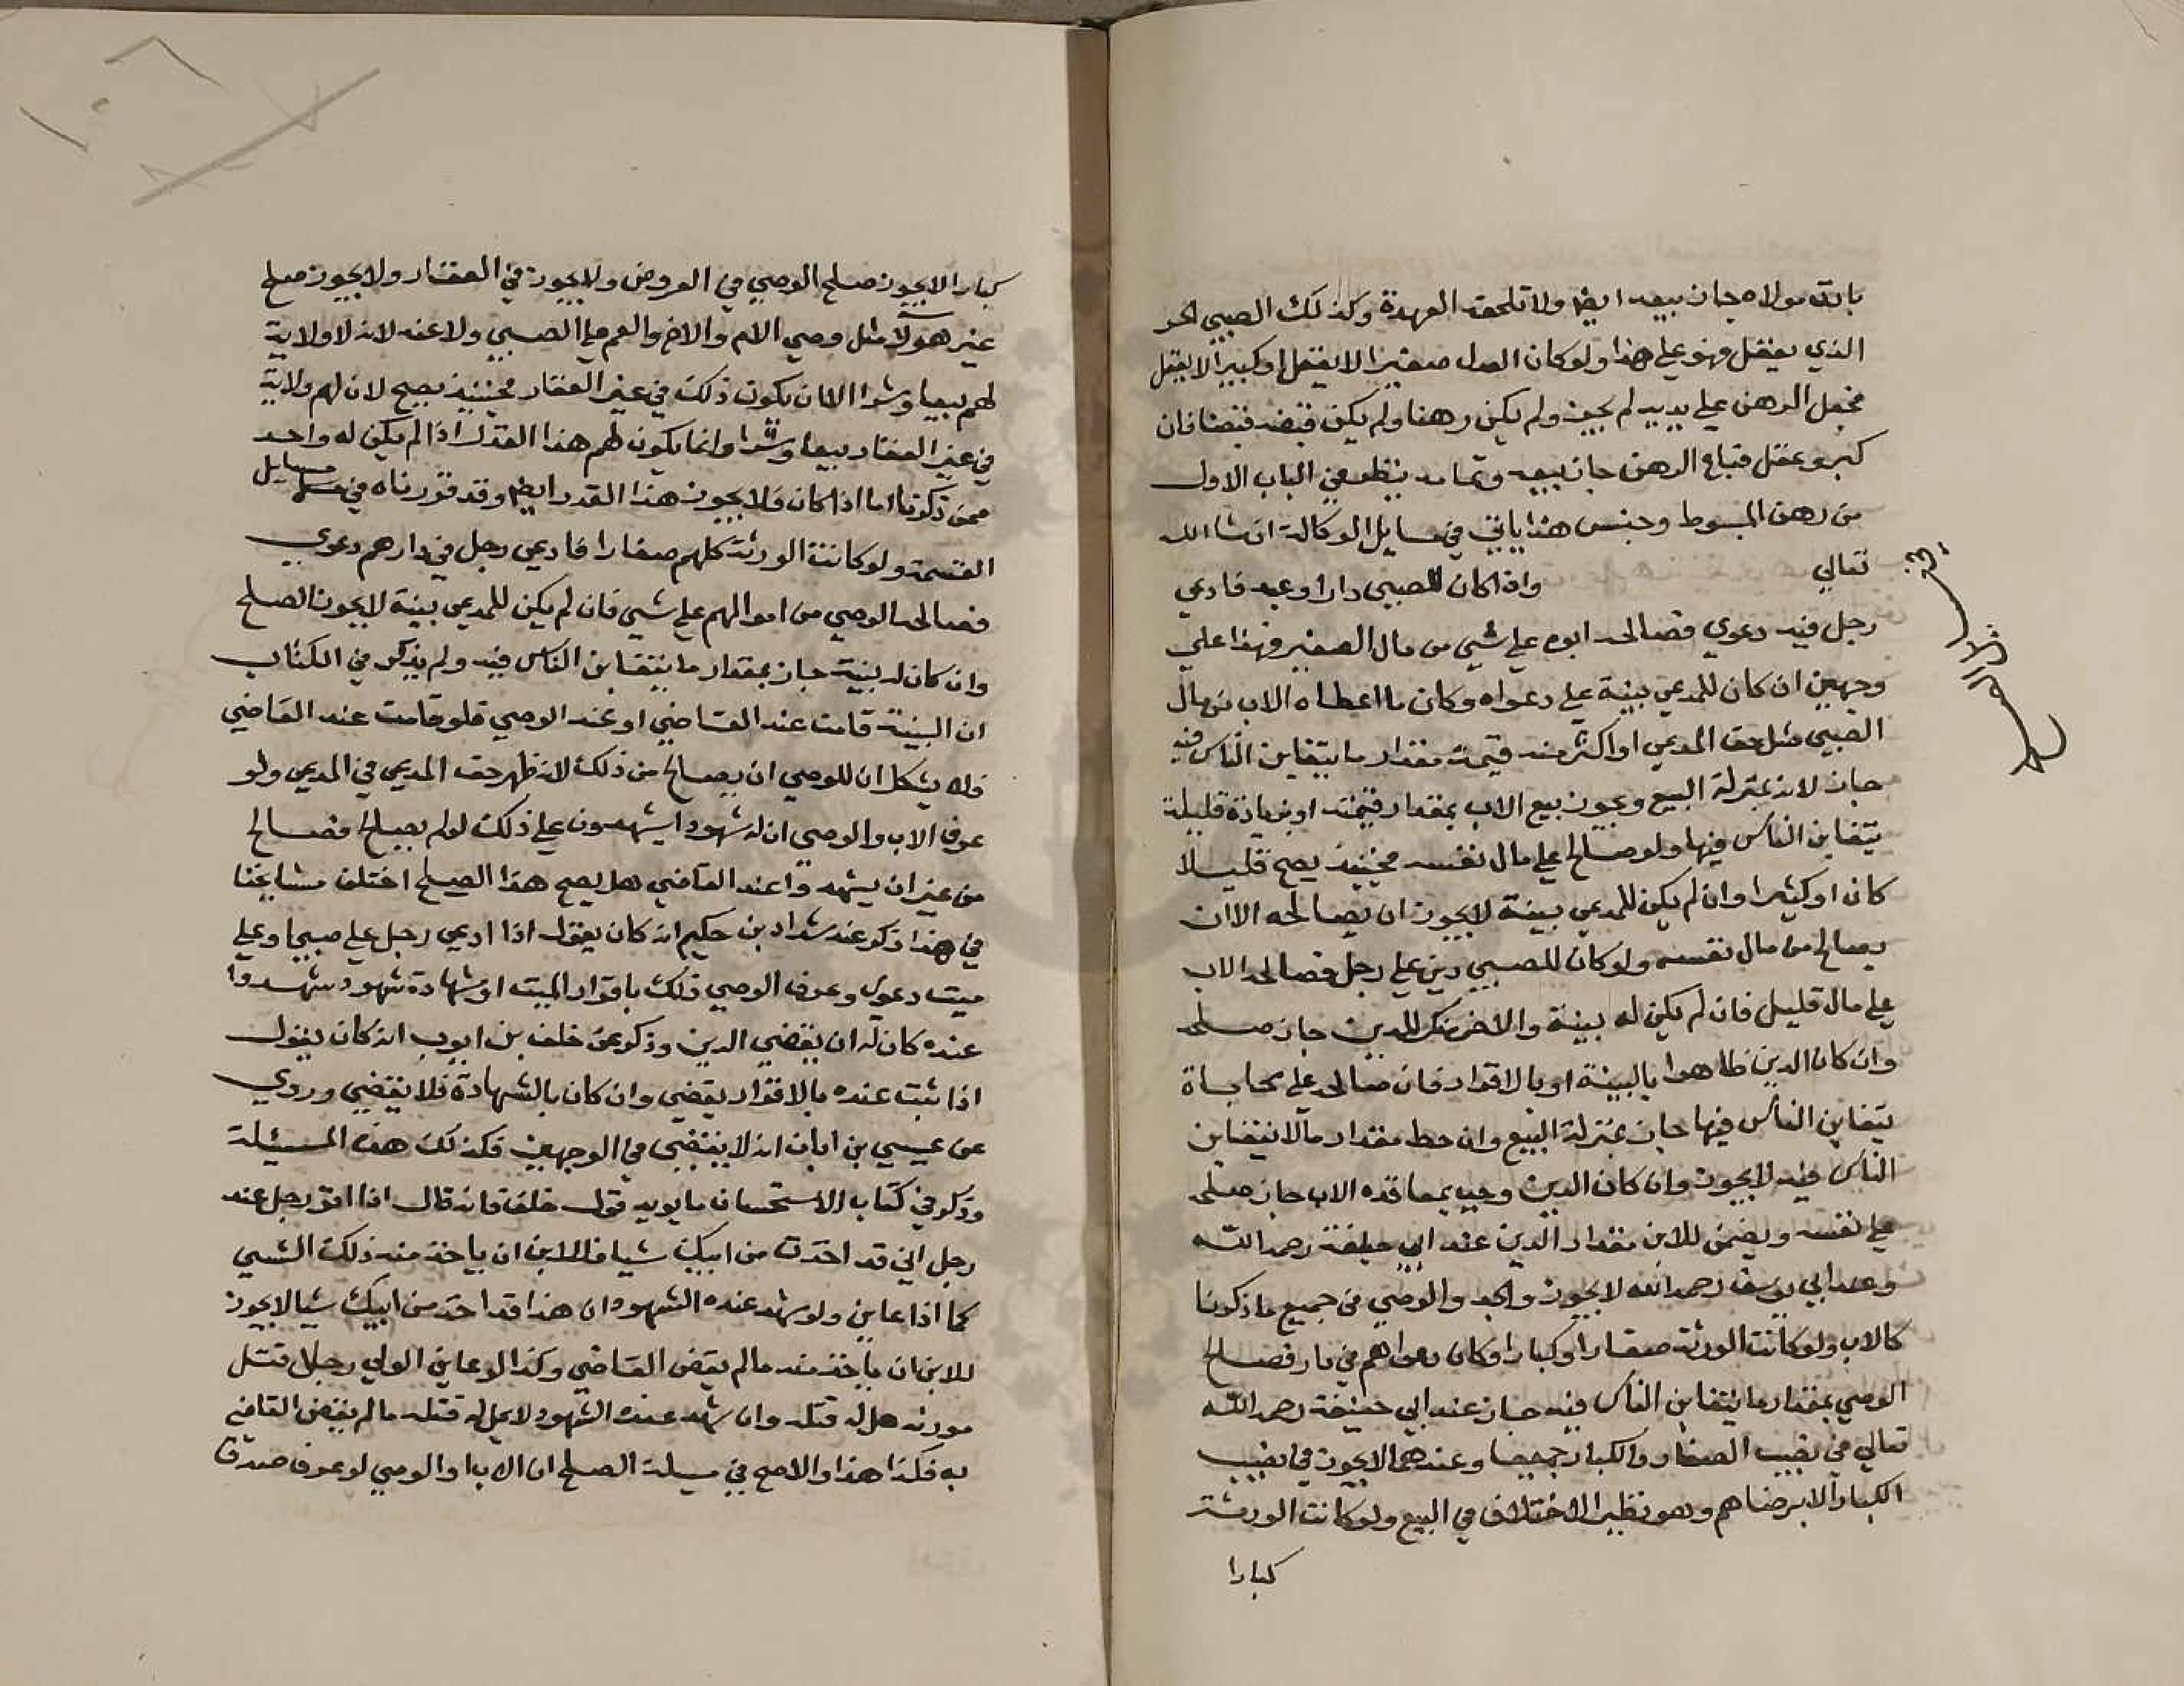 باذن مولاه جاز بيعه ايضا ولا تلحقه العهدة وكذلك الصبي الحر
الذي يعقل فهو على هذا ولو كان العدل صغيرا لا يعقل او كبيرا لا يعقل
فجعل الرهن على يديه لم يجز ولم يكن رهنا ولم يكن قبضه قبضا فان
كبر وعقل فباع الرهن جاز بيعه وتمامه ينظر في الباب الاول
من رهن المبسوط وجنس هذا ياتي في مسايل الوكالة ان شا الله
تعالي واذا كان للصبي دارا وعبد فادعي
رجل فيه دعوي فصالحه ابوه علي شي من مال الصغير فهذا علي
وجهين ان كان للمدعي بينة علي دعواه وكان ما اعطاه الاب من مال
الصبي مثل حق المدعي او اكثر منه قيمة مقدار ما يتغابن الناس فيه
جاز لانه بمنزلة البيع ويجوز بيع الاب بمقدار قيمته او بزيادة قليلة
يتغابن الناس فيها ولو صالح علي مال نفسه فحينئذ يصح قليلا
كان او كثيرا وان لم يكن للمدعي بينة لا يجوز ان يصالحه الا ان
يصالح من مال نفسه ولو كان للصبي دين علي رجل فصالحه الاب
علي مال قليل فان لم يكن له بينة والاخر منكر للدين جاز صلحه
وان كان الدين ظاهرا بالبينة او بالاقرار فان صالحه علي محاباة
يتغابن الناس فيها جاز بمنزلة البيع وان حط مقدار ما لا يتغابن
الناس فيه لا يجوز وان كان الدين وجب بمعاقده الاب جاز صلحه
علي نفسه ويضمن للابن مقدار الدين عند ابي حنيفة رحمه الله
وعند ابي يوسف رحمه الله لا يجوز والجد والوصي في جميع ما ذكرنا
كالاب ولو كانت الورثة صغارا وكبارا وكان دعواهم في دار فصالح
الوصي بمقدار ما يتغابن الناس فيه جاز عند ابي حنيفة رحمه الله
تعالي في نصيب الصغار والكبار جميعا وعندهما لا يجوز في نصيب
الكبار الا برضاهم وهو نظير الاختلاف في البيع ولو كانت الورثة
كبارا
كبارا لا يجوز صلح الوصي في العروض ولا يجوز في العقار ولا يجوز صلح
غير هولا مثل وصي الام والاخ والعم علي الصبي ولا عنه لانه لا ولاية
لهم بيعا وشرا الا ان يكون ذلك في غير العقار فحينئذ يصح لان لهم ولاية
في غير العقار بيعا وشرا وانما يكون لهم هذا القدر اذا لم يكن له واحد
ممن ذكرنا اما اذا كان فلا يجوز هذا القدر ايضا وقد قررناه في مسايل
القسمة ولو كانت الورثة كلهم صغارا فادعي رجل في دارهم دعوي
فصالحه الوصي من اموالهم علي شي فان لم يكن للمدعي بينة لا يجوز الصلح
وان كان له بينة جاز بمقدار ما يتغابن الناس فيه ولم يذكر في الكتاب
ان البينة قامت عند القاضي او عند الوصي فلو قامت عند القاضي
فلا يشكل ان للوصي ان يصالح من ذلك لانه ظهر حق المدعي في المدعي ولو
عرف الاب والوصي ان له شهودا يشهدون علي ذلك لو لم يصالح فصالح
من غير ان يشهدوا عند القاضي هل يصح هذا الصلح اختلف مشايخنا
في هذا ذكر عند شداد بن حكيم انه كان يقول اذا ادعي رجل علي صبي او علي
ميت دعوي وعرف الوصي ذلك باقرار الميت او شهادة شهود شهدوا
عنده كان له ان يقضي الدين وذكر عن خلف بن ايوب انه كان يقول
اذا ثبت عنده بالاقرار يقضي وان كان بالشهادة فلا يقضي وروي
عن عيسي بن ابان انه لا يقضي في الوجهين فكذلك هذه المسئلة
وذكر في كتاب الاستحسان ما يويد قول خلف فانه قال اذا اقر رجل عند
رجل اني قد اخذت من ابيك شيا فللابن ان ياخذ منه ذلك الشي
كما اذا عاين ولو شهد عنده الشهود ان هذا قد اخذ من ابيك شيا لا يجوز
للابن ان ياخذ منه ما لم يقض القاضي وكذا لو عاين الولي رجلا قتل
مورثه حل له قتله وان شهد عنده الشهود لا يحل له قتله ما لم يقض القاضي
به فكذا هذا والاصح في مسيلة الصلح ان الاب او الوصي لو عرف صدق